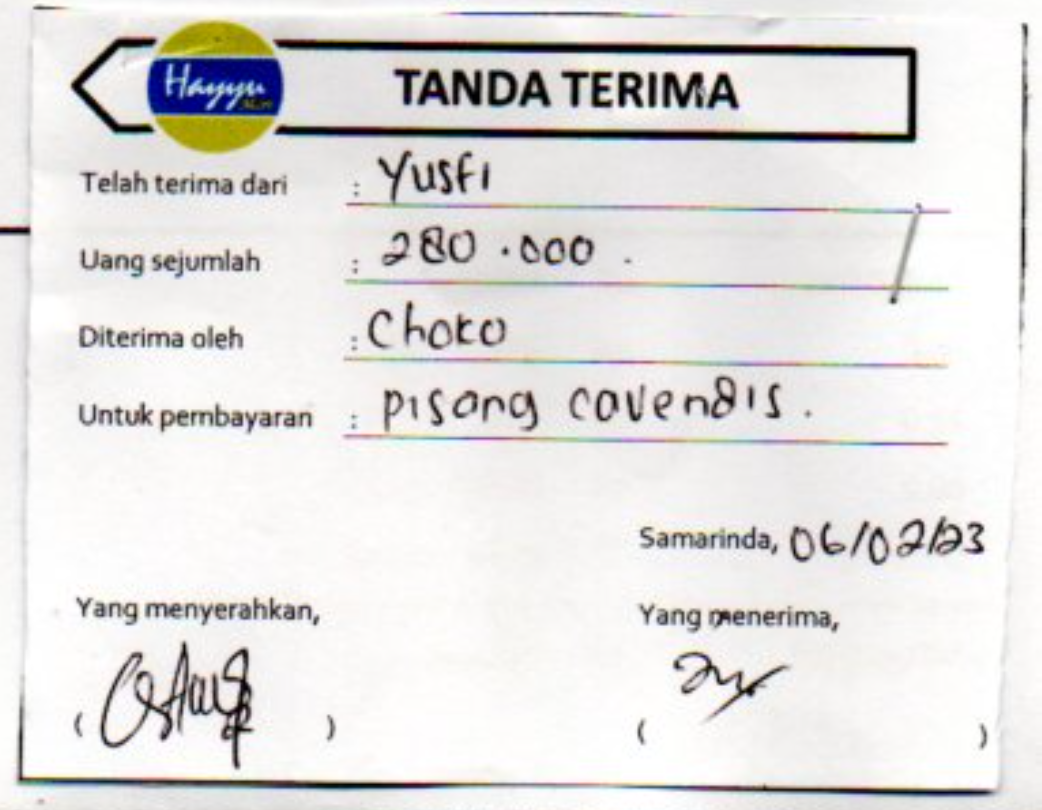 Hayyu
TANDA TERIMA
Telah terima dari : Yusfi
Uang sejumlah : 280.000.
Diterima oleh : Choko
Untuk pembayaran : pisang cavendis.
Samarinda, 06/02/23
Yang menyerahkan, Yang menerima,
( ) ( )